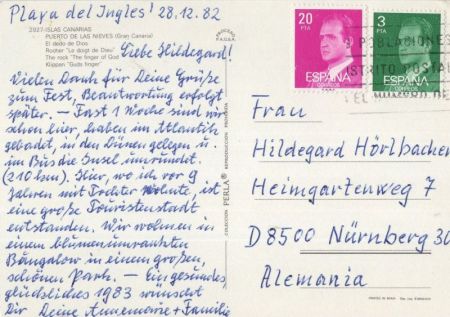 Playa del Ingles! 28.12.82
2027-ISLAS CANARIAS
PUERTO DE LAS NIEVES (Gran Canaria)
El dedo de Dios
Rocher "Le doigt de Dieu"
The rock "The finger of God"
Klippen "Guds finger"
Liebe Hildegard!
Vielen Dank für Deine Grüße
zum Fest, Beantwortung erfolgt
später. – Fast 1 Woche sind wir
schon hier, haben im Atlantik
gebadet, in den Dünen gelegen u.
im Bus die Insel umrundet.
(210 km). Hier, wo ich vor 9
Jahren mit Tochter wohnte, ist
eine große Touristenstadt
entstanden. Wir wohnen in
einem blumenumrankten
Bungalow in einem großen,
schönen Park. – Ein gesundes
glückliches 1983 wünscht
Dir Deine Annemarie + Familie
COLECCION PERLA
REPRODUCCION PROHIBIDA
20
PTA
ESPAÑA
CORREOS
3
PTA
ESPAÑA
CORREOS
POBLACIONES
DISTRITO POSTAL
Frau
Hildegard Hörlbacher
Heimgartenweg 7
D8500 Nürnberg 30
Alemania
PRINTED IN SPAIN